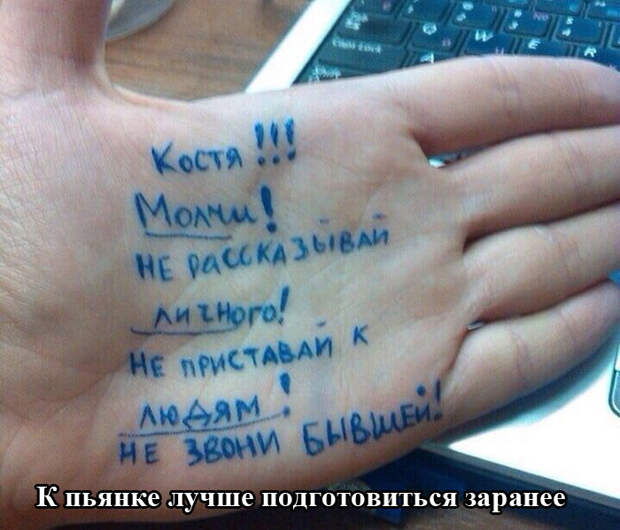 Костя!!!
Молчи!
НЕ РАССКАЗЫВАЙ
личного!
НЕ ПРИСТАВАЙ К
людям!
НЕ ЗВОНИ БЫВШЕЙ!
К пьянке лучше подготовиться заранее